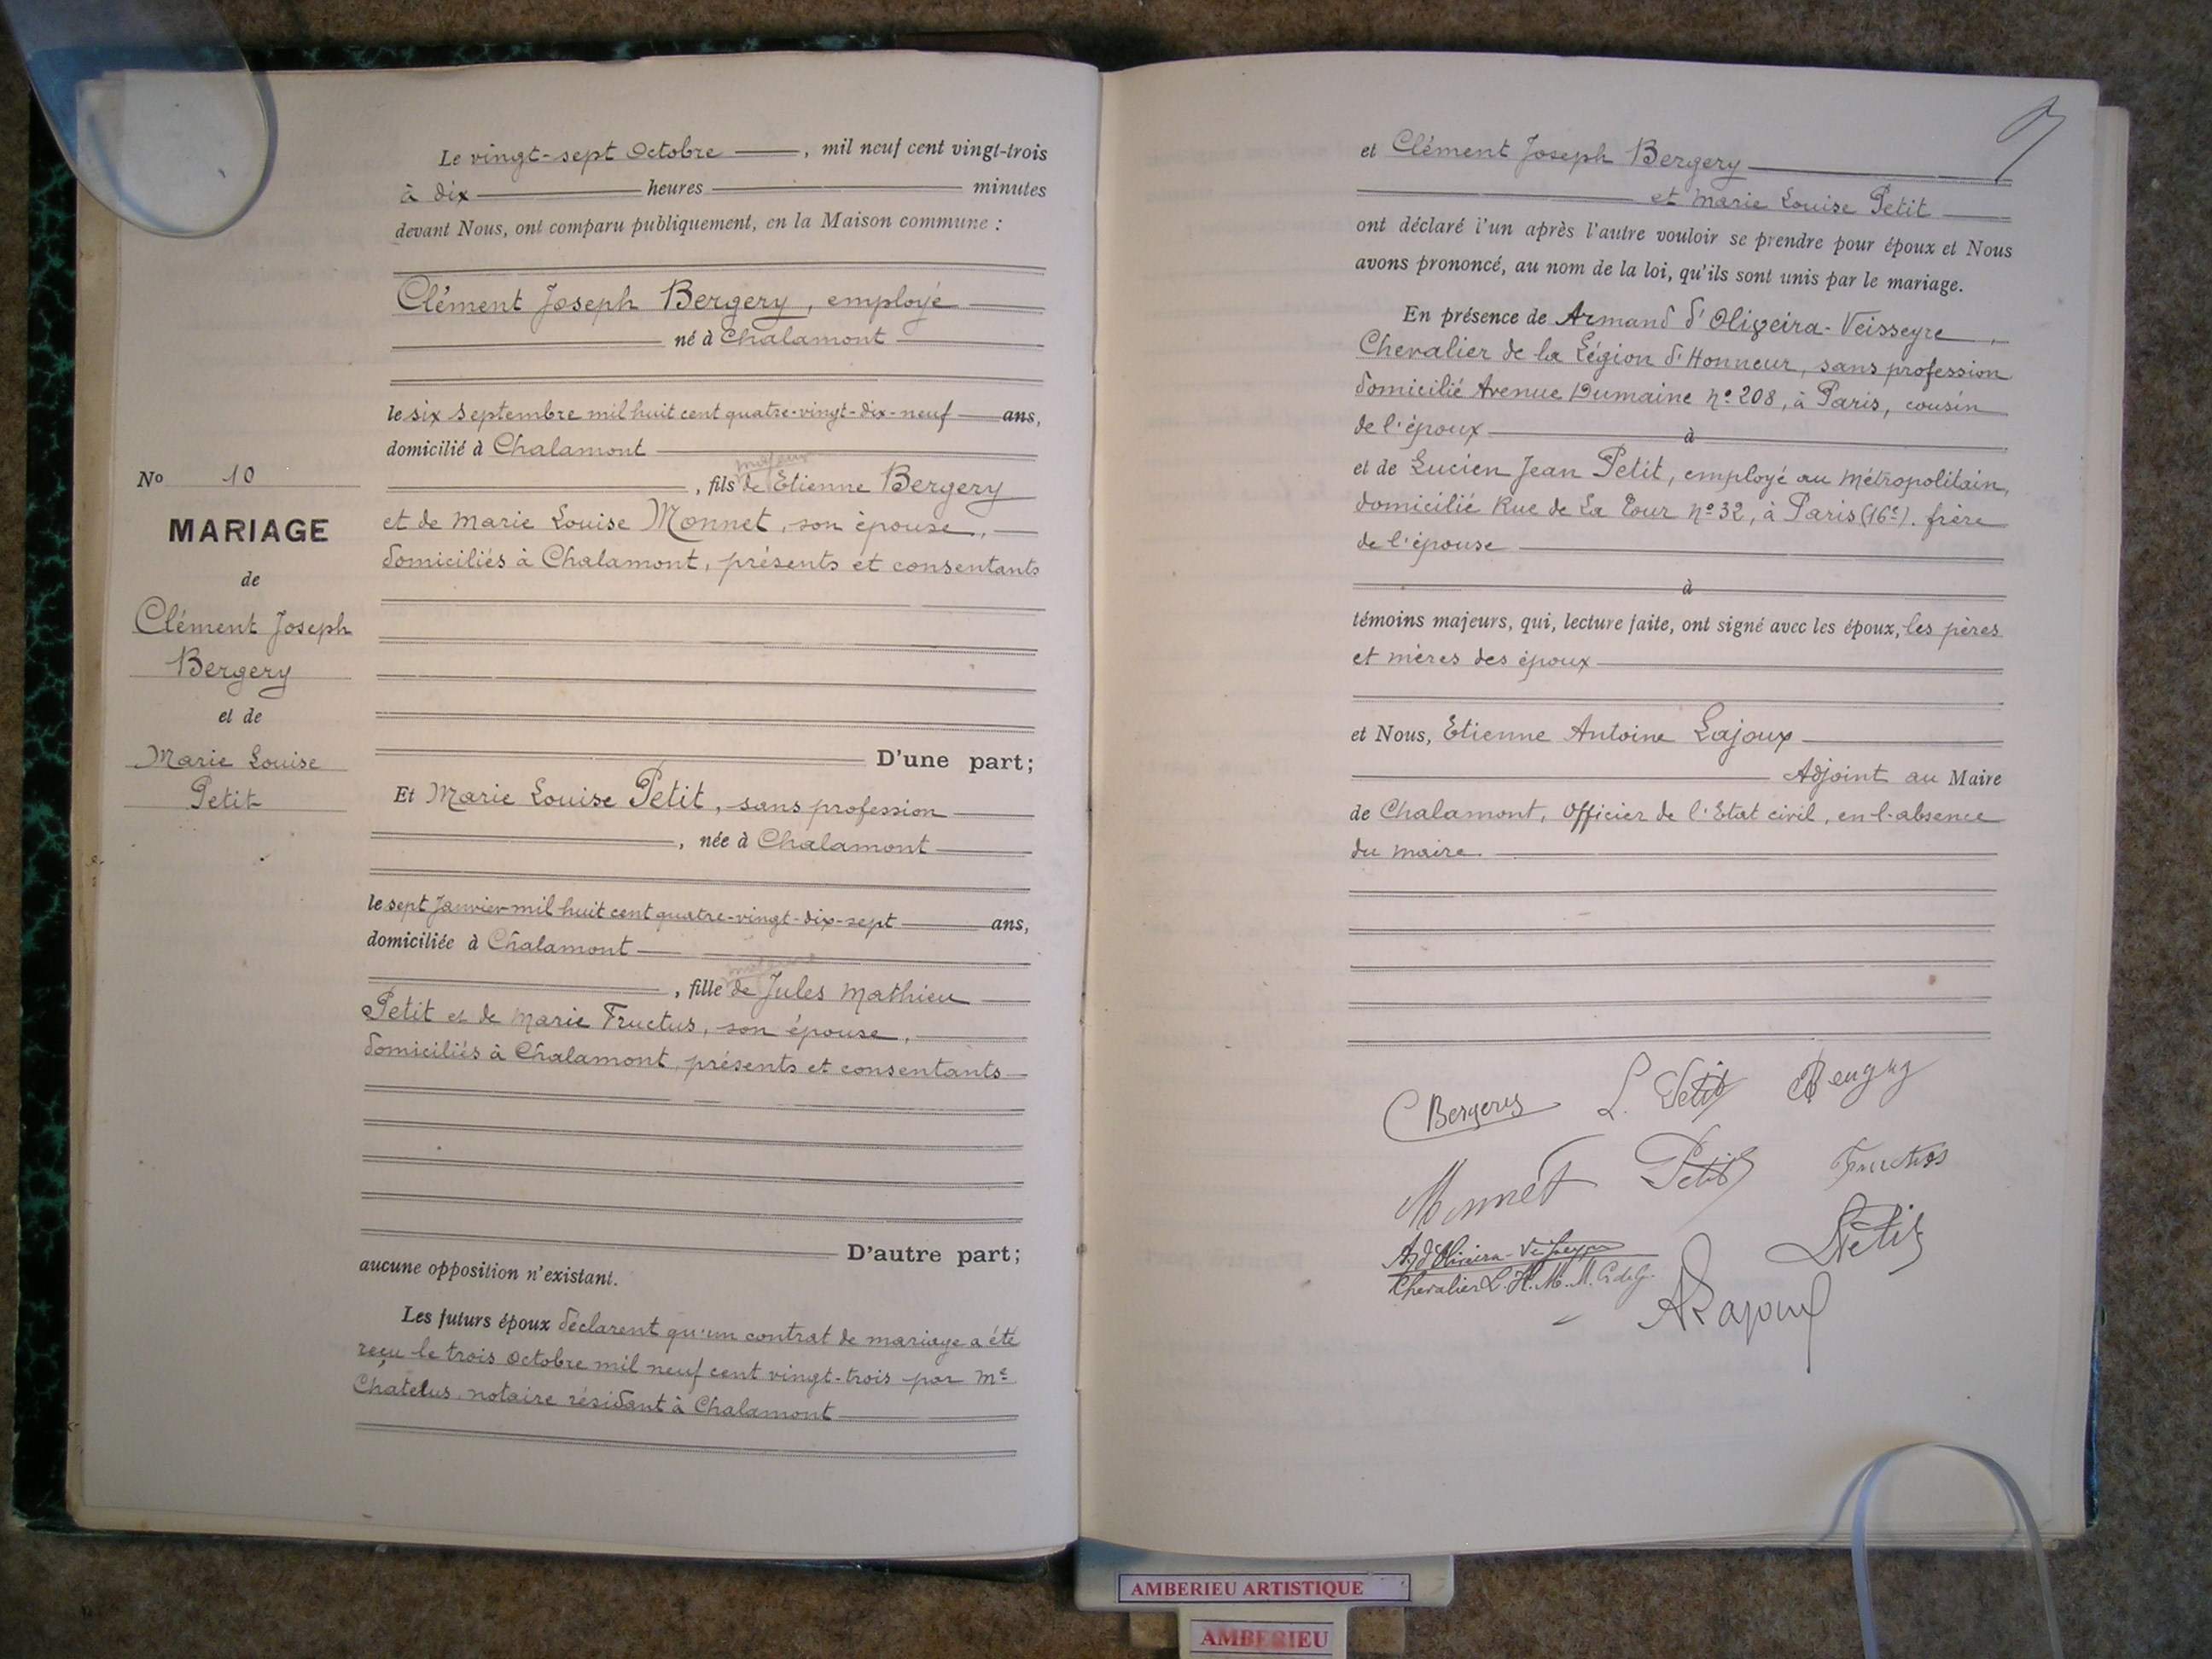 Le vingt-sept Octobre, mil neuf cent vingt-trois
à dix heures minutes
devant Nous, ont comparu publiquement, en la Maison commune :
Clément Joseph Bergery, employé
né à Chalamont
le six Septembre mil huit cent quatre-vingt-dix-neuf ans,
domicilié à Chalamont
majeur
, fils de Etienne Bergery
et de Marie Louise Monnet, son épouse,
domiciliés à Chalamont, présents et consentants
D'une part;
Et Marie Louise Petit, sans profession
, née à Chalamont
le sept Janvier mil huit cent quatre-vingt-dix-sept ans,
domiciliée à Chalamont
majeure
, fille de Jules Mathieu
Petit et de Marie Fructus, son épouse,
domiciliés à Chalamont, présents et consentants
D'autre part;
aucune opposition n'existant.
Les futurs époux déclarent qu'un contrat de mariage a été
reçu le trois Octobre mil neuf cent vingt-trois par Me
Chatelus, notaire résidant à Chalamont
No 10
MARIAGE
de
Clément Joseph
Bergery
et de
Marie Louise
Petit
et Clément Joseph Bergery
et Marie Louise Petit
ont déclaré l'un après l'autre vouloir se prendre pour époux et Nous
avons prononcé, au nom de la loi, qu'ils sont unis par le mariage.
En présence de Armand d'Oliveira-Veisseyre,
Chevalier de la Légion d'Honneur, sans profession
domicilié Avenue Dumaine no 208, à Paris, cousin
de l'époux à
et de Lucien Jean Petit, employé au Métropolitain,
domicilié Rue de La Tour no 32, à Paris (16e). frère
de l'épouse
à
témoins majeurs, qui, lecture faite, ont signé avec les époux, les pères
et mères des époux
et Nous, Etienne Antoine Lajoux
Adjoint au Maire
de Chalamont, Officier de l'Etat civil, en l'absence
du maire.
C Bergery L. Petit Bergery
Monnet Petit Fructus
Ad'Oliveira-Veisseyre Petit
Chevalier L.H. M.M. C. de G.
A Lajoux
AMBERIEU ARTISTIQUE
AMBERIEU